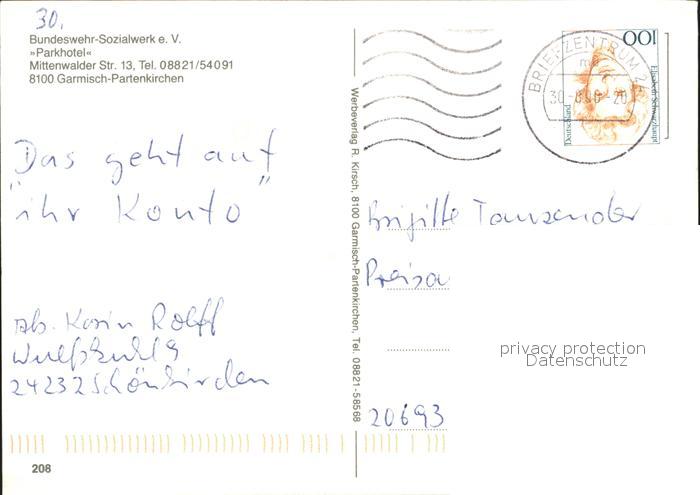 30.
Bundeswehr-Sozialwerk e. V.
»Parkhotel«
Mittenwalder Str. 13, Tel. 08821/54091
8100 Garmisch-Partenkirchen
Das geht auf
"ihr Konto"
Abs. Karin Rolff
24232 Schönkirchen
208
Werbeverlag R. Kirsch, 8100 Garmisch-Partenkirchen, Tel. 08821-58568
BRIEFZENTRUM 24
100
Elisabeth Schwarzhaupt
Deutschland
Brigitte
20693
privacy protection
Datenschutz